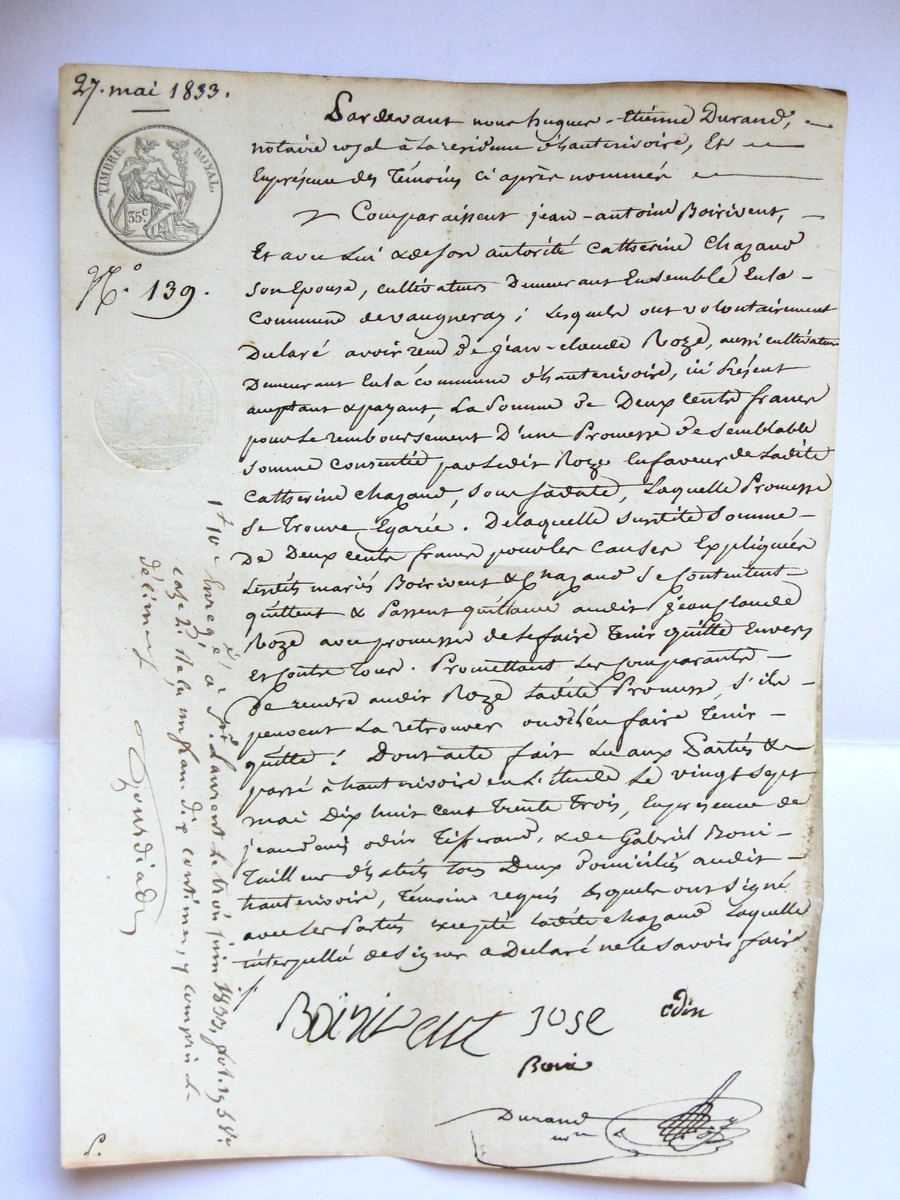 27. mai 1833.
TIMBRE ROYAL.
35c
No. 139.
Pardevant nous hugues-Etienne Durand,
notaire royal à La residence d'hauterivoire, Et
En présence des Témoins ci après nommés
Comparaissent jean-antoine Boirivent,
Et avec Lui & de son autorité Catherine Chazaud
son Epouse, cultivateurs Demeurant Ensemble En la
Commune de vaugneray ; Lesquels ont volontairement
Déclaré avoir reçu de jean-claude Roze, aussi cultivateur
Demeurant En la commune d'hauterivoire, ici Présent
acceptant & payant, La Somme de Deux cents francs
pour Le remboursement D'une Promesse de semblable
Somme Consentie par Ledit Roze En faveur de Ladite
Catherine Chazaud, sous sa date, Laquelle Promesse
se Trouve Egarée. De laquelle susdite Somme
De Deux cents francs pour les Causes Expliquées
Lesdits mariés Boirivent & Chazaud se Contentent
quittent & Passent quittance audit jean Claude
Roze avec promesse de Le faire Tenir quitte Envers
Et Contre Tous. Promettant Les Comparants
De rendre audit Roze Ladite Promesse, s'ils
peuvent La retrouver ou d'en faire Tenir
quitte ! Dont acte fait Lu aux Parties &
passé à hauterivoire en L'Etude Le vingt sept
mai Dix huit cent Trente Trois, En présence de
jean denis odin Tisserand, & de Gabriel Boni
Tailleur d'habits tous Deux Domiciliés audit
hauterivoire, Témoins requis Lesquels ont signé
avec Les Parties excepté Ladite Chazaud Laquelle
interpellée de signer a Déclaré ne le savoir faire
Boirivent
rose
odin
Boni
Durand
nore
Enregé à St. Laurent Le trois juin 1833, fol. 19
case 2. reçu un franc dix centimes, y compris Le
décime